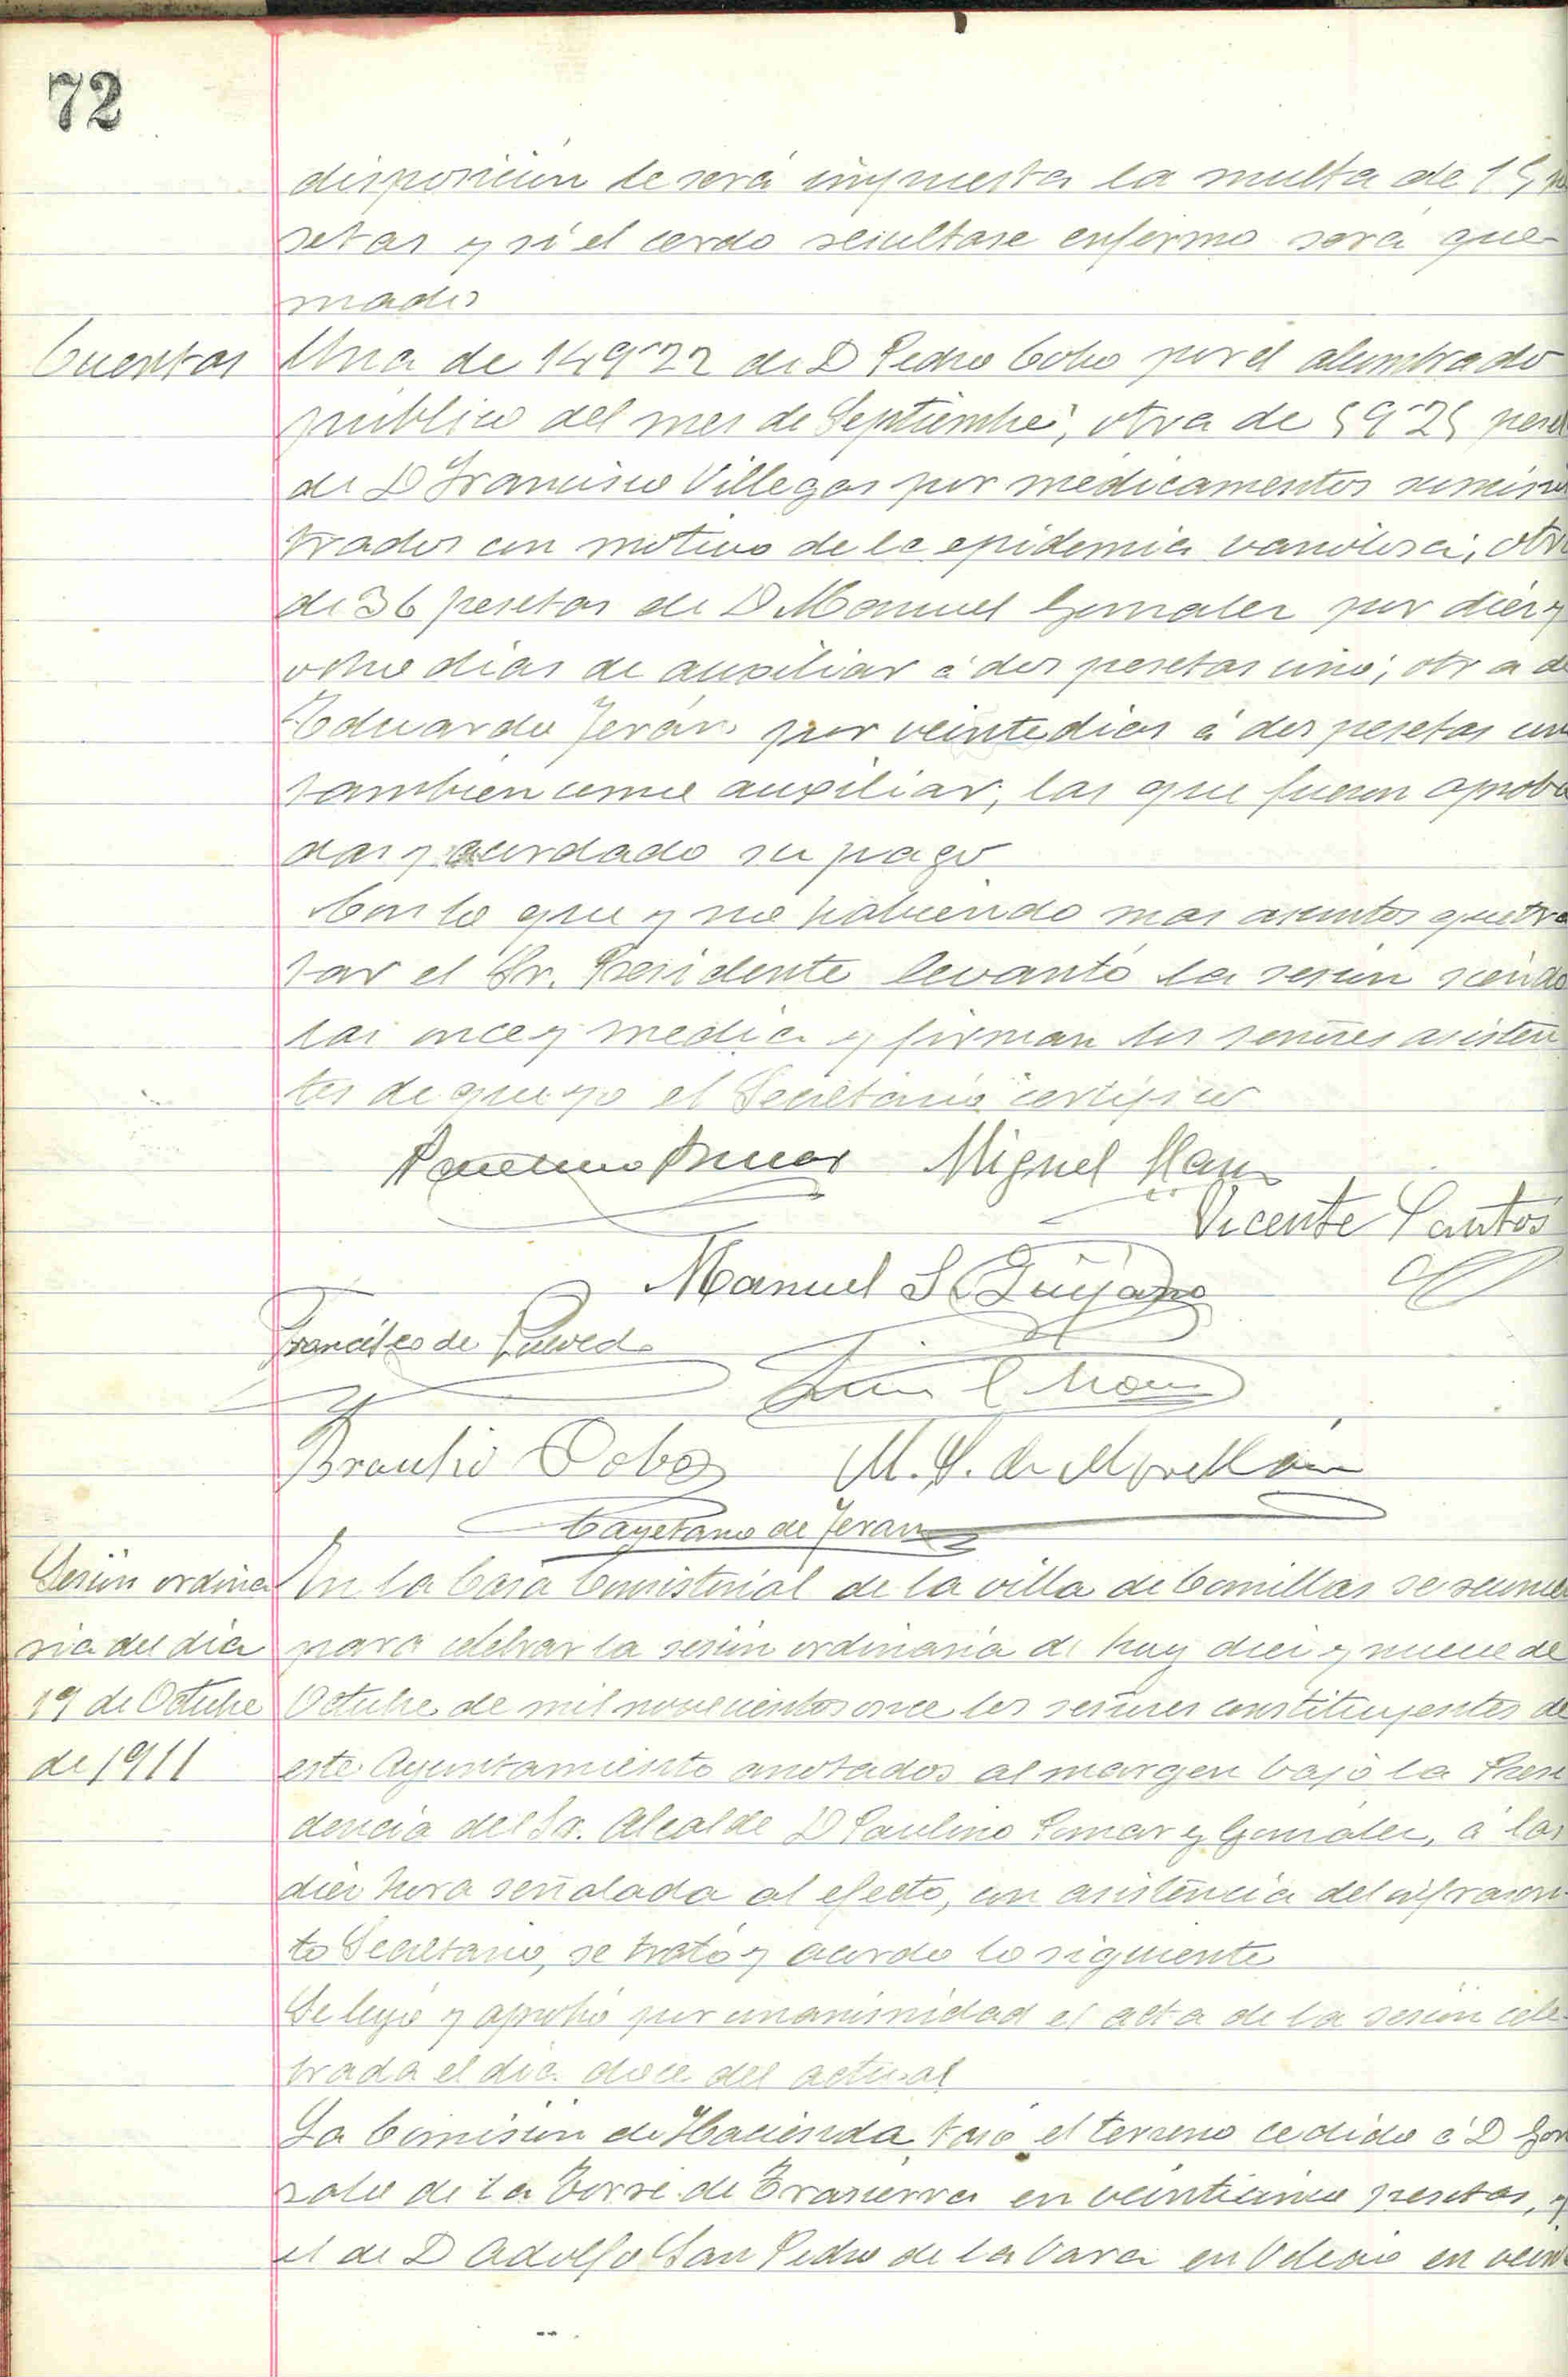 72
disposicion le será impuesta la multa de 15 pe
setas y si el cerdo resultase enfermo será que-
mado
Cuentas
Una de 149'22 de D Pedro Cobo por el alumbrado
publico del mes de Septiembre; otra de 59'25 peset
de D Francisco Villegas por medicamentos suminis
trados con motivo de la epidemia variolosa; otra
de 36 pesetas de D Manuel Gonzalez por diez y
ocho dias de auxiliar á dos pesetas uno; otra de
Eduardo Jerán por veinte dias á dos pesetas uno
tambien como auxiliar; las que fueron aproba
das y acordado su pago
Con lo que y no habiendo mas asuntos que tra
tar el Sr. Presidente levantó la sesion siendo
las once y media y firman los señores asisten
tes de que yo el Secretario certifico
Miguel
Vicente Santos
Manuel S Quijano
Francisco de
Braulio Cobo M. S. de Movellán
Cayetano de Jerán
Sesion ordina
ria del dia
19 de Octubre
de 1911
En la Casa Consistorial de la villa de Comillas se reunen
para celebrar la sesion ordinaria de hoy diez y nueve de
Octubre de mil novecientos once los señores constituyentes de
este Ayuntamiento anotados al margen bajo la Presi
dencia del Sr. Alcalde D Paulino Pomar y Gonzalez, á las
diez hora señalada al efecto, con asistencia del infrascri
to Secretario, se trató y acordó lo siguiente
Se leyó y aprobó por unanimidad el acta de la sesion cele-
brada el dia doce del actual
La Comision de Hacienda tasó el terreno cedido á D Gon
zalo de la Torre de Trasierra en veinticinco pesetas, y
el de D Adolfo San Pedro de la Vara en Velecio en vein